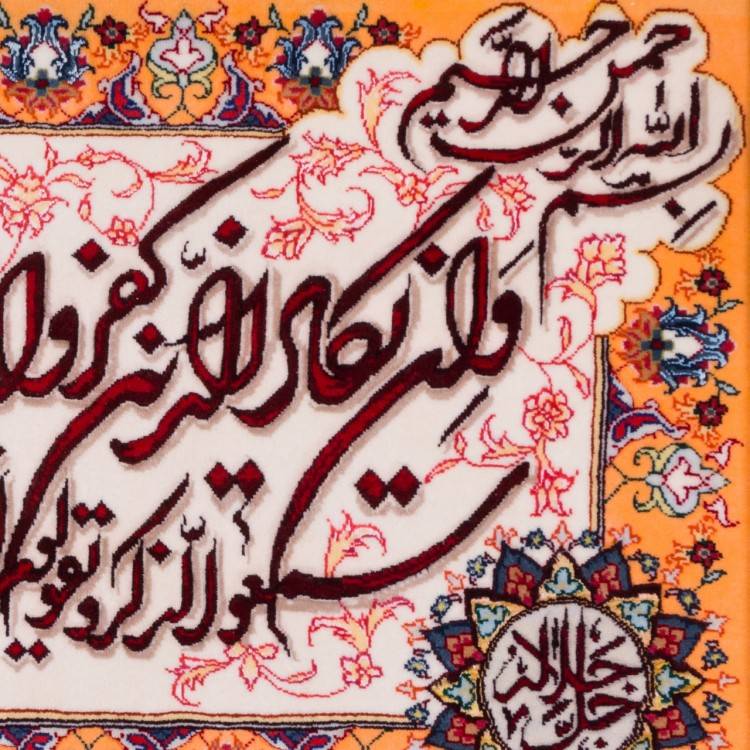 بسم الله الرحمن الرحیم
وان یکاد الذین کفروا
سمعوا الذکر و یقولو